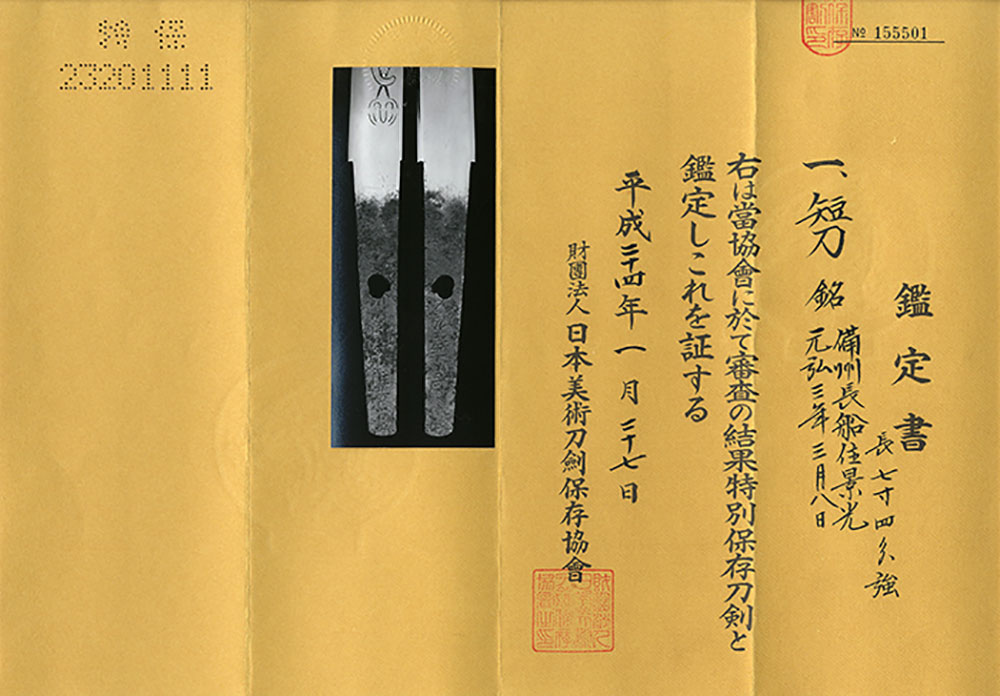 № 155501
鑑定書
一、短刀 銘 備州長船住景光
元弘三年三月八日
長七寸四分強
右は當協會に於て審査の結果特別保存刀剣と
鑑定しこれを証する
平成二十四年一月二十七日
財團法人 日本美術刀劍保存協會
特保
23201111